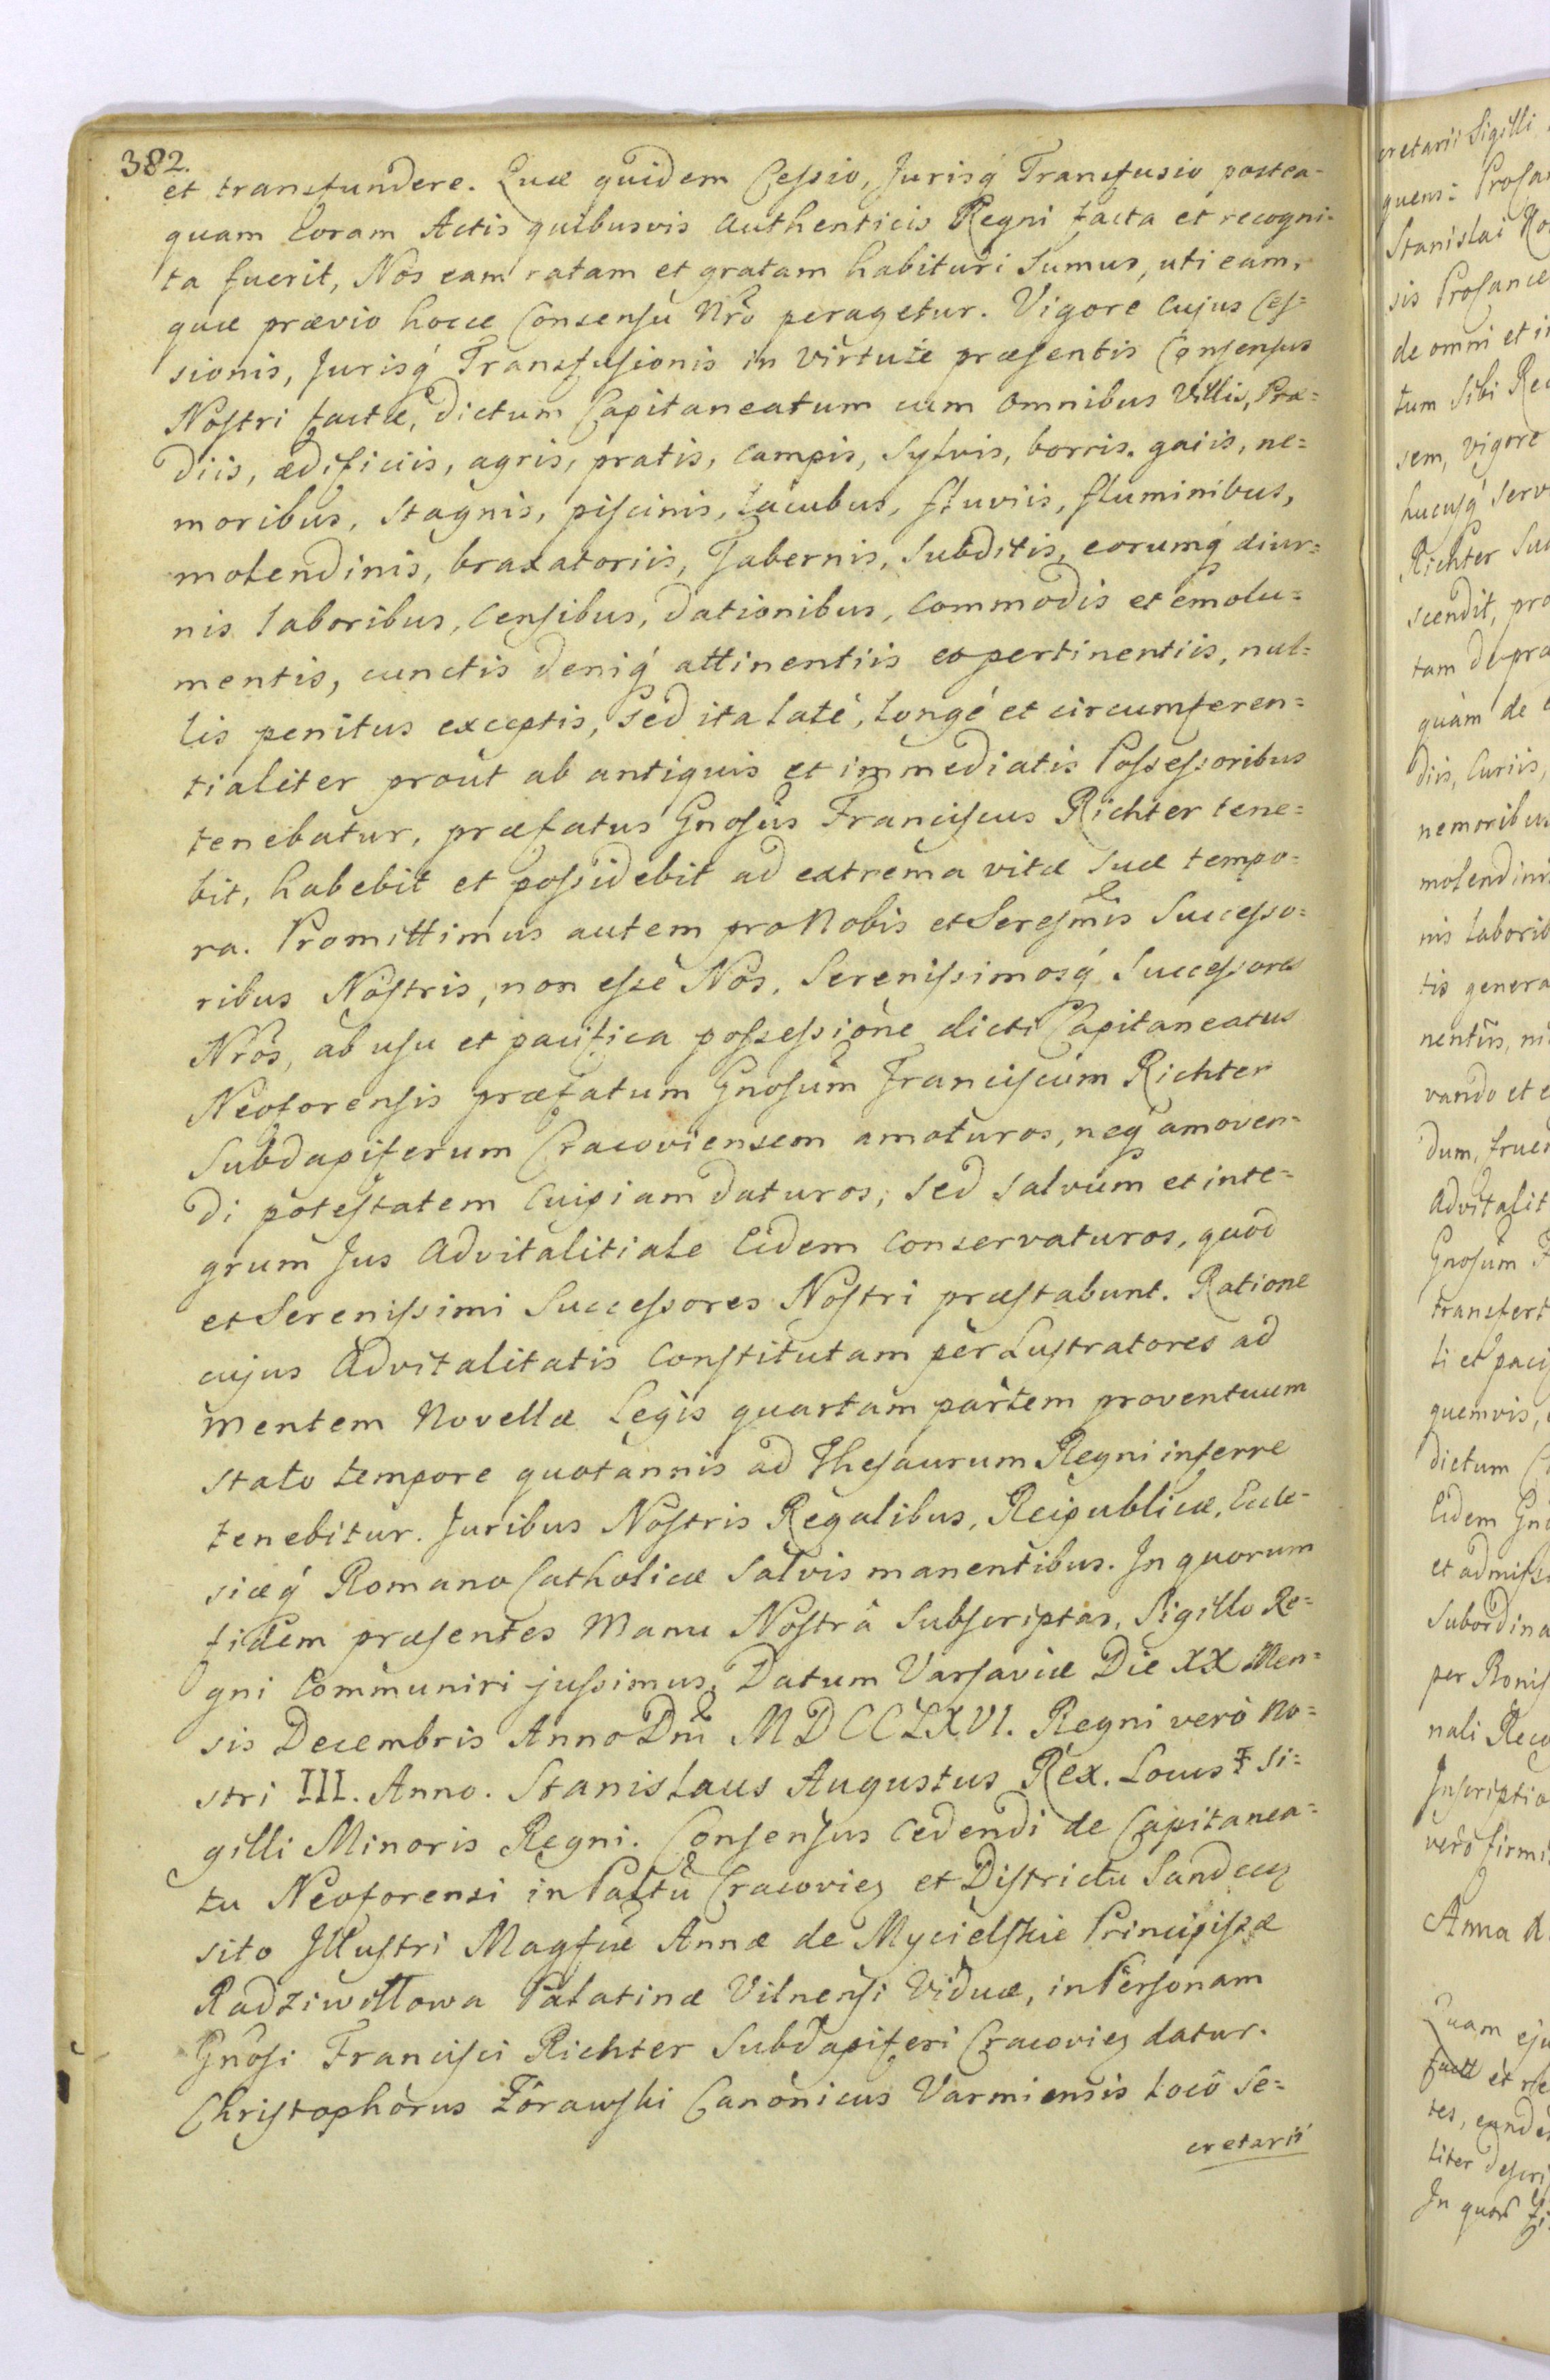 382.
et transfundere. Quæ quidem Cessio, Jurisq́ Transfusio postea-
quam Coram Actis quibusvis Authenticis Regni facta et recogni-
ta fuerit, Nos eam ratam et gratam habituri Sumus, uti eam,
quæ prævio hocce Consensu Nrô peragetur. Vigore Cujus Ces-
sionis, Jurisq́ Transfusionis in virtute præsentis Consensus
Nostri factæ, dictum Capitaneatum cum omnibus Villis, Præ-
diis, ædificiis, agris, pratis, campis, Sylvis, borris, gaiis, ne-
moribus, Stagnis, piscinis, Lacubus, fluviis, fluminibus,
molendinis, braxatoriis, Tabernis, Subditis, eorumq́ diur-
nis laboribus, Censibus, dationibus, Commodis et emolu-
mentis, cunctis deniq́ attinentiis et pertinentiis, nul-
lis penitus exceptis, Sed ita latè, Longè et circumferen-
tialiter prout ab antiquis et immediatis Possessoribus
tenebatur, præfatus Gnosus Franciscus Richter tene-
bit, habebit et possidebit ad extrema vitæ Suæ tempo-
ra. Promittimus autem pro Nobis et Seresmis Successo-
ribus Nostris, non esse Nos, Serenissimosq́ Successores
Nrôs, ab usu et pacifica possessione dicti Capitaneatus
Neoforensis præfatum Gnosum Franciscum Richter
Subdapiferum Cracoviensem amoturos, neq́ amoven-
di potestatem Cuipiam daturos, Sed Salvum et inte-
grum Jus Advitalitiale Eidem Conservaturos, quod
et Serenissimi Successores Nostri præstabunt. Ratione
cujus Advitalitatis Constitutam per Lustratores ad
mentem Novellæ Legis quartam partem proventuum
stato tempore quotannis ad Thesaurum Regni inferre
tenebitur. Juribus Nostris Regalibus, Reipublicæ, Eccle-
siæq́ Romano Catholicæ Salvis manentibus. In quorum
fidem præsentes Manu Nostrâ Subscriptas, Sigillo Re-
gni Communiri jussimus. Datum Varsaviæ Die XX Men-
sis Decembris Anno Dni MDCCLXVI. Regni verò No-
stri III. Anno. Stanislaus Augustus Rex. Locus Si-
gilli Minoris Regni. Consensus Cedendi de Capitanea-
tu Neoforensi in Palttu Cracovien et Districtu Sandecen
sito Illustri Magfcæ Annæ de Mycielskie Principissæ
Radziwiłłowa Palatinæ Vilnensi Viduæ, in Personam
Gnosi Francisci Richter Subdapiferi Cracovien datur.
Christophorus Żórawski Canonicus Varmiensis Locô Se-
cretarii
cretarii Sigilli
Stanislai
de omni et
tum Sibi
sem, vigore
Richter
scendit,
quàm de
diis, Curiis,
nis
tis
vando et
dum,
Gnosum
ti et
quemvis,
dictum
Eidem
et
per
nali
verò
Anna
Quam
et
In